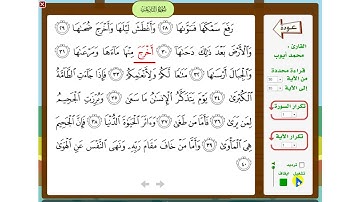 سُورَةُ النَّازِعَاتِ
رَفَعَ سَمْكَهَا فَسَوَّىٰهَا ﴿٢٨﴾ وَأَغْطَشَ لَيْلَهَا وَأَخْرَجَ ضُحَىٰهَا ﴿٢٩﴾
وَٱلْأَرْضَ بَعْدَ ذَٰلِكَ دَحَىٰهَا ﴿٣٠﴾ أَخْرَجَ مِنْهَا مَآءَهَا وَمَرْعَىٰهَا ﴿٣١﴾
وَٱلْجِبَالَ أَرْسَىٰهَا ﴿٣٢﴾ مَتَٰعًا لَّكُمْ وَلِأَنْعَٰمِكُمْ ﴿٣٣﴾ فَإِذَا جَآءَتِ ٱلطَّآمَّةُ
ٱلْكُبْرَىٰ ﴿٣٤﴾ يَوْمَ يَتَذَكَّرُ ٱلْإِنسَٰنُ مَا سَعَىٰ ﴿٣٥﴾ وَبُرِّزَتِ ٱلْجَحِيمُ
لِمَن يَرَىٰ ﴿٣٦﴾ فَأَمَّا مَن طَغَىٰ ﴿٣٧﴾ وَءَاثَرَ ٱلْحَيَوٰةَ ٱلدُّنْيَا ﴿٣٨﴾ فَإِنَّ ٱلْجَحِيمَ
هِىَ ٱلْمَأْوَىٰ ﴿٣٩﴾ وَأَمَّا مَنْ خَافَ مَقَامَ رَبِّهِۦ وَنَهَى ٱلنَّفْسَ عَنِ ٱلْهَوَىٰ
﴿٤٠﴾
عودة
القارئ :
محمد أيوب
قراءة محددة
من الآية
إلى الآية
تكرار السورة
تكرار الآية
ترديد
تشغيل
ايقاف